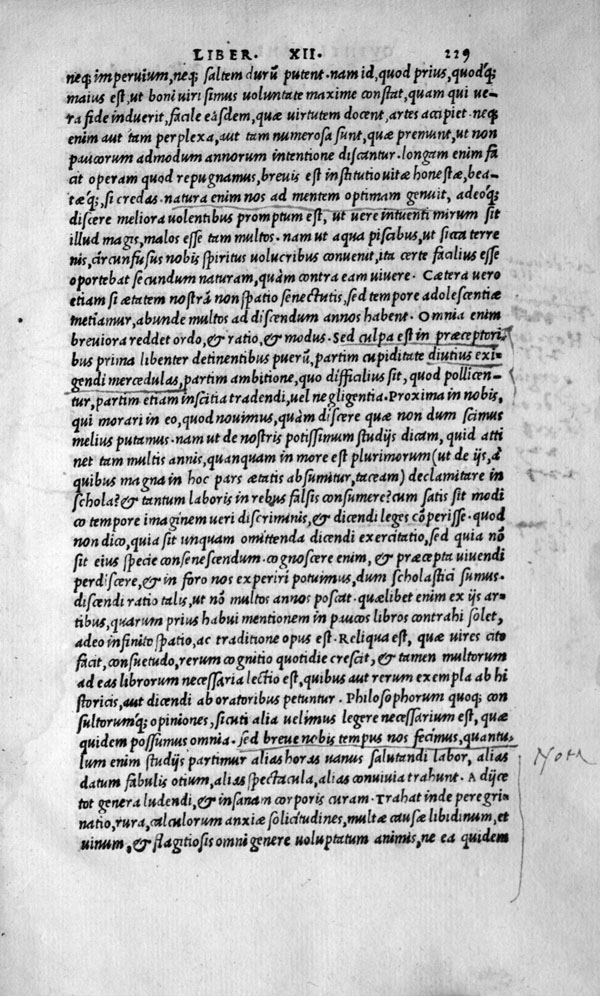 LIBER. XII. 229
neq; imperuium, neq; saltem durũ putent. nam id, quod prius, quodq́;
maius est, ut boni uiri simus uoluntate maxime constat, quam qui ue-
ra fide induerit, facile easdem, quæ uirtutem docent, artes accipiet. neq;
enim aut tam perplexa, aut tam numerosa sunt, quæ premunt, ut non
paucorum admodum annorum intentione discantur. longam enim fa
cit operam quod repugnamus, breuis est institutio uitæ honestæ, bea-
tæq́;, si credas. natura enim nos ad mentem optimam genuit, adeoq́;
discere meliora uolentibus promptum est, ut uere intuenti mirum sit
illud magis, malos esse tam multos. nam ut aqua piscibus, ut sicca terre
nis, circunfusus nobis spiritus uolucribus conuenit, ita certe facilius esse
oportebat secundum naturam, quàm contra eam uiuere. Cætera uero
etiam si ætatem nostrã non spatio senectutis, sed tempore adolescentiæ
metiamur, abunde multos ad discendum annos habent. Omnia enim
breuiora reddet ordo, & ratio, & modus. Sed culpa est in præceptori-
bus prima libenter detinentibus puerũ, partim cupiditate diutius exi-
gendi mercedulas, partim ambitione, quo difficilius sit, quod pollicen-
tur, partim etiam inscitia tradendi, uel negligentia. Proxima in nobis,
qui morari in eo, quod nouimus, quàm discere quæ non dum scimus
melius putamus. nam ut de nostris potissimum studijs dicam, quid atti
net tam multis annis, quanquam in more est plurimorum (ut de ijs, à
quibus magna in hoc pars ætatis absumitur, taceam) declamitare in
schola? & tantum laboris in rebus falsis consumere? cum satis sit modi
co tempore imaginem ueri discriminis, & dicendi leges cõperisse. quod
non dico, quia sit unquam omittenda dicendi exercitatio, sed quia nõ
sit eius specie consenescendum. cognoscere enim, & præcepta uiuendi
perdiscere, & in foro nos experiri potuimus, dum scholastici sumus.
discendi ratio talis, ut nõ multos annos poscat. quælibet enim ex ijs ar-
tibus, quarum prius habui mentionem in paucos libros contrahi solet,
adeo infinito spatio, ac traditione opus est. Reliqua est, quæ uires cito
facit, consuetudo, rerum cognitio quotidie crescit, & tamen multorum
ad eas librorum necessaria lectio est, quibus aut rerum exempla ab hi
storicis, aut dicendi ab oratoribus petuntur. Philosophorum quoq; con
sultorumq́; opiniones, sicuti alia uelimus legere necessarium est, quæ
quidem possumus omnia. sed breue nobis tempus nos fecimus, quantu-
lum enim studijs partimur alias horas uanus salutandi labor, alias
datum fabulis otium, alias spectacula, alias conuiuia trahunt. Adijce
tot genera ludendi, & insanam corporis curam. Trahat inde peregri-
natio, rura, calculorum anxiæ solicitudines, multæ causæ libidinum, et
uinum, & flagitiosis omni genere uoluptatum animis, ne ea quidem
Nota